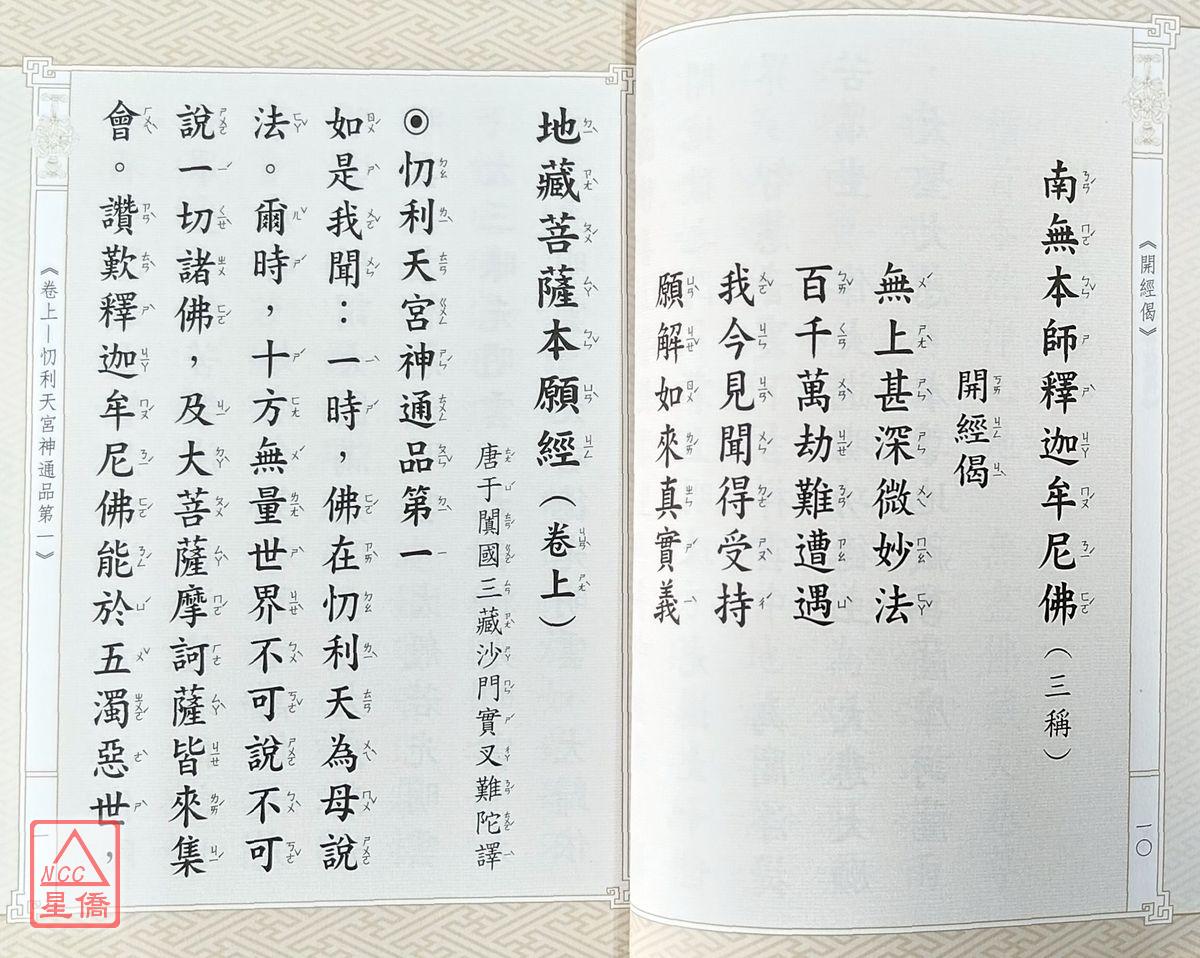 《開經偈》
一〇
南無本師釋迦牟尼佛（三稱）
開經偈
無上甚深微妙法
百千萬劫難遭遇
我今見聞得受持
願解如來真實義
地藏菩薩本願經（卷上）
唐于闐國三藏沙門實叉難陀譯
◉忉利天宮神通品第一
如是我聞：一時，佛在忉利天為母說
法。爾時，十方無量世界不可說不可
說一切諸佛，及大菩薩摩訶薩皆來集
會。讚歎釋迦牟尼佛能於五濁惡世，
《卷上－忉利天宮神通品第一》
NCC
星僑